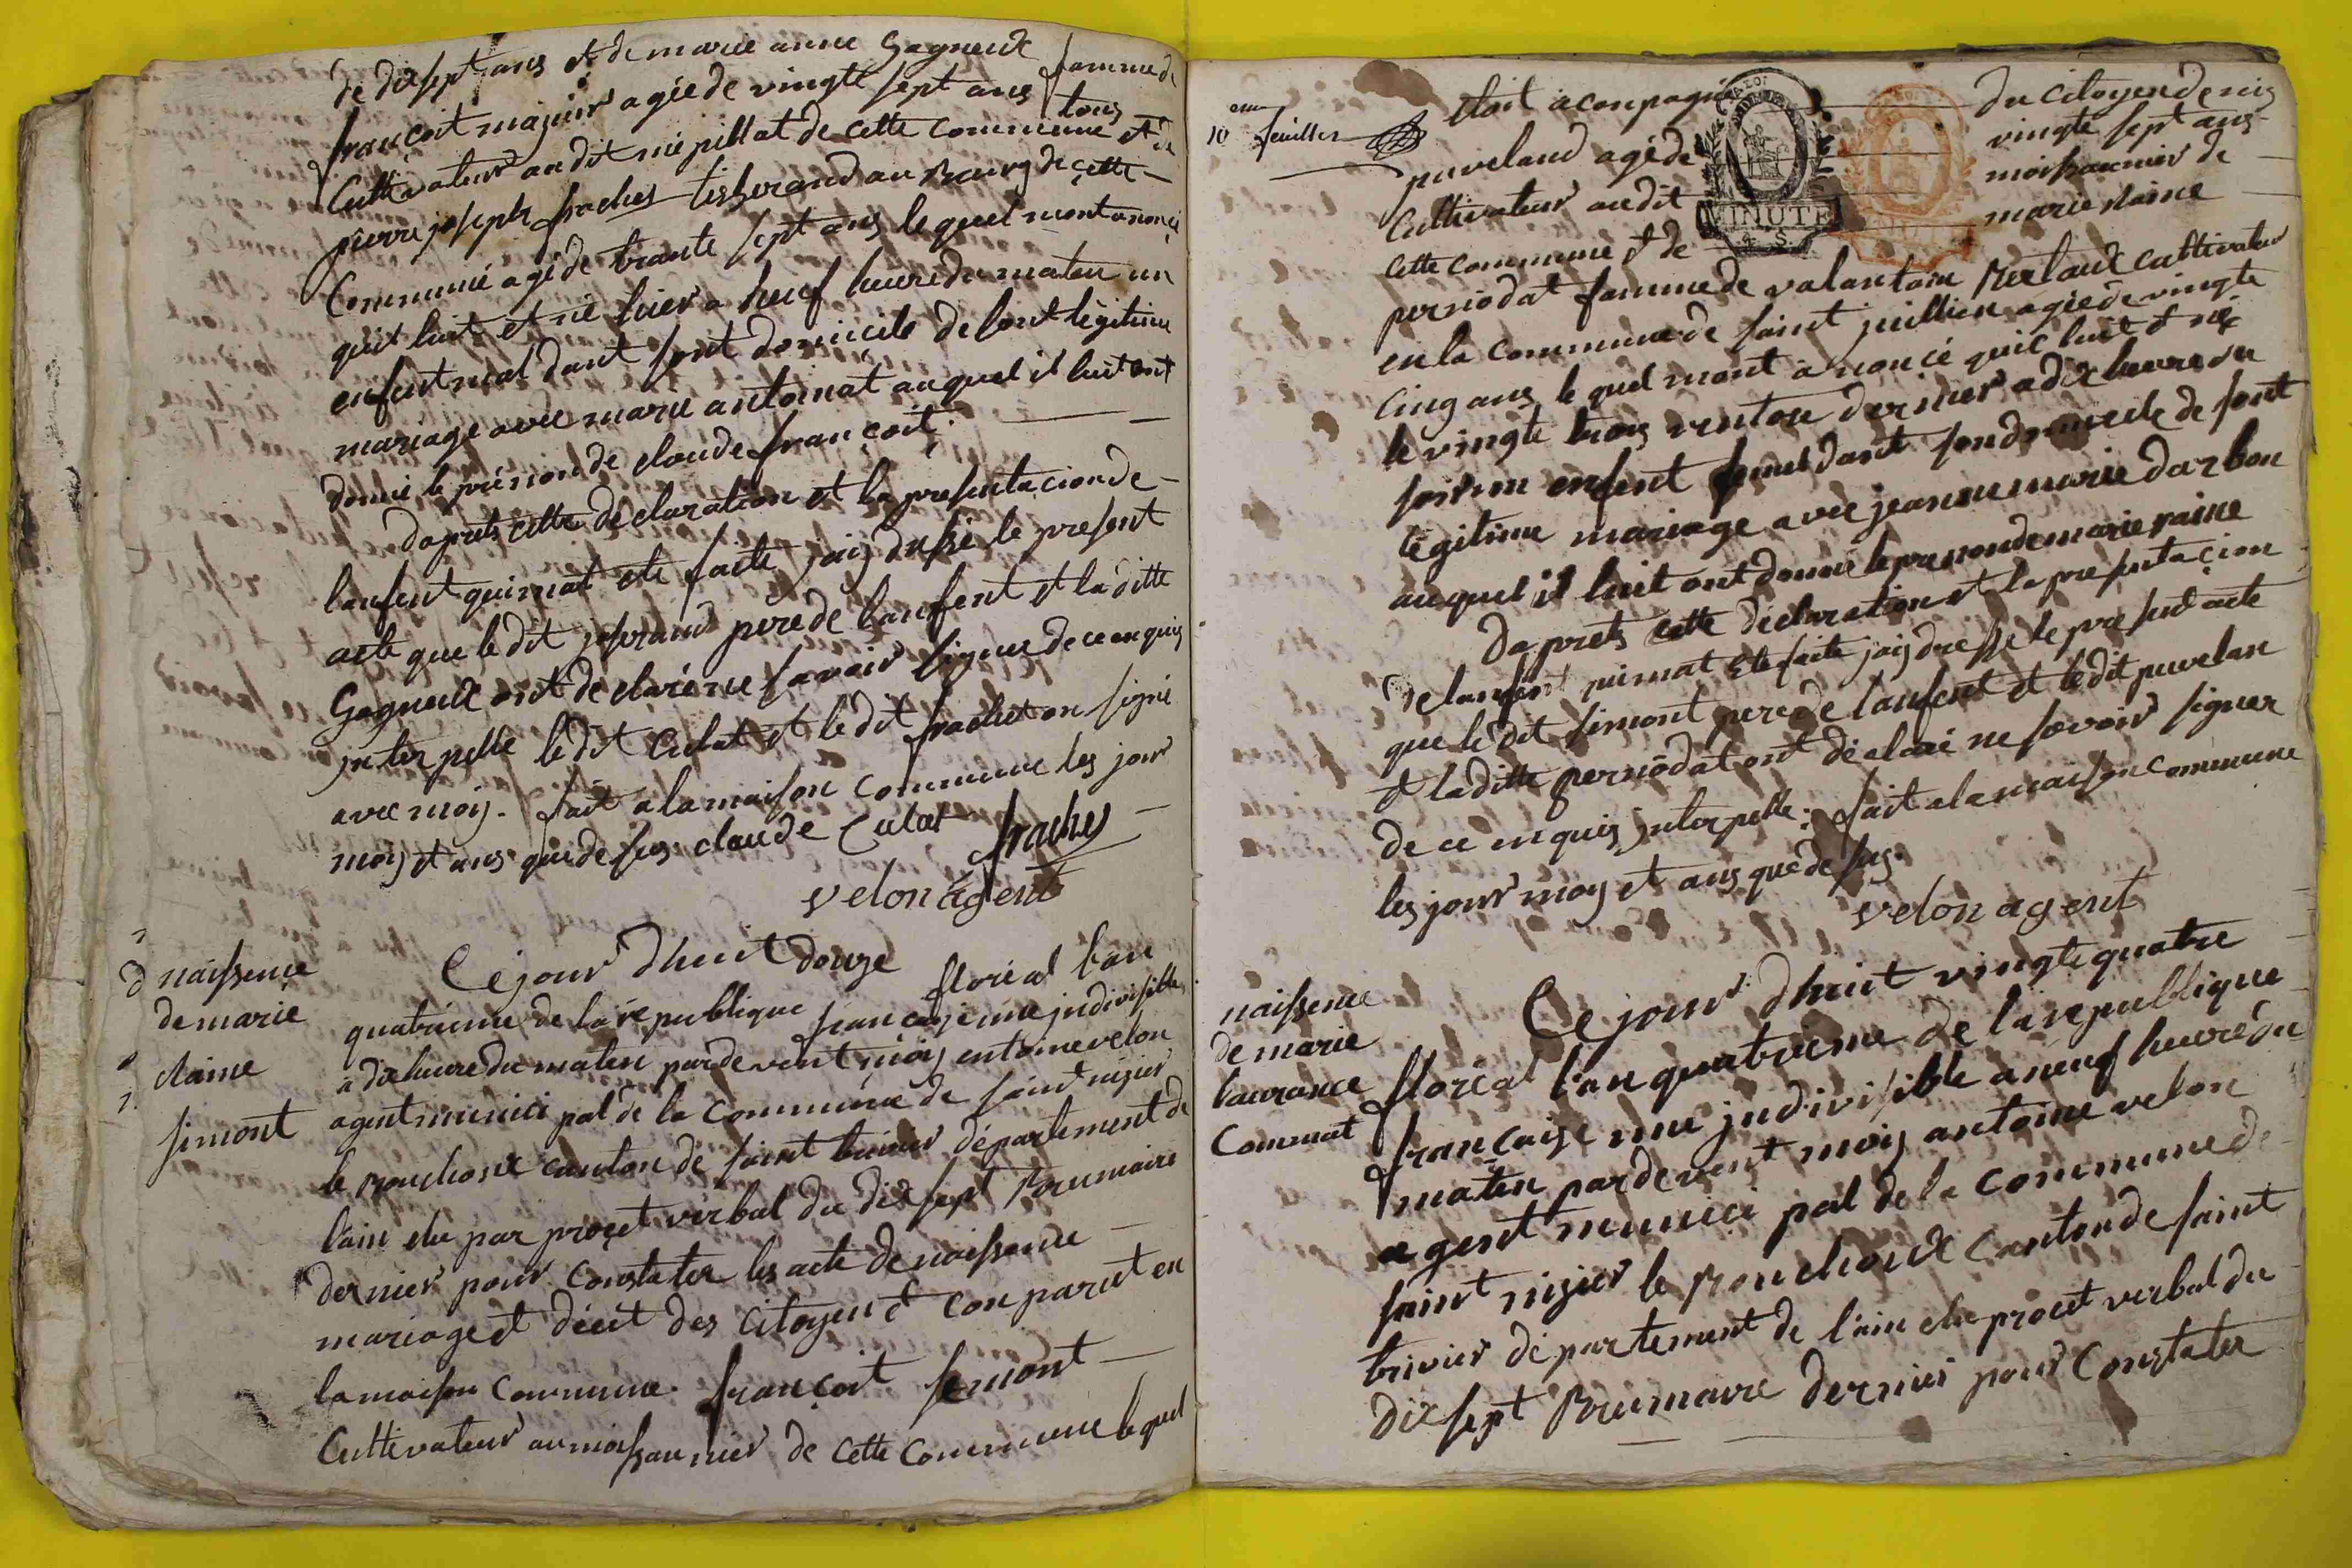 de dixsept ans et de marie anne Gagneux famme de
francoit majeur agée de vingte sept ans tous
Cultivateur au dit nié pillat de cette commune et de
pierre joseph fraches tisserand au Bourg de cette
Communé agé de trante sept ans le quel mont anoncé
quit luit et né hier a neuf heure du maten un
enfent mal dant sont domicile de sont légitime
mariage avec marie antoinat auquel il luit ont
donné le prénon de claude françoit.
Daprets cette déclaration et la presentacion de
lanfent quimat eté faite jaij dressé le present
acte que le dit joserand pére de lanfent et la ditte
Gagneux ont declaré ne savoir signer de ce enquis
jnterpellé le dit Culat et le dit frachet on signé
avec moij. fait a la maison commune les jour
mois et ans que de sus claude Culat fraches
velon agent
naissence
de marie
claine
simont
Ce jour dhuit douze floréal l'an
quatriéme de la république francaise une jndivisible
a dix heure du maten pardevent moij entoine velon
agent munici pal de la commune de saint nizier
le Bouchoux canton de saint trivier département de
l'ain elu par proçet vérbal du dix sept Brumaire
dernier pour constater les acte de naissence
mariage et décet des citoyen et conparut en
la maison commune francoit semont
Cultivateur au moissaunier de cette commune lequel
10 eme feuillet
etoit aconpagné du citoyen denis
puveland agé de vingte sept ans
Cultivateur audit moissaunier de
cette commune et de marie claine
MINUTE
perniodat famme de valantain Berlaud cultivateur
en la commune de saint juillien agée de vingte
cinq ans le quel mont a noncé quil luit et né
le vingte trois ventose dernier a dix heure du
soir un enfent femel dant son domicile de sont
légitime mariage avec jeanne marie darbon
auquel il luit ont donné le prenon de marie claine
Daprets cette déclaration et la presentacion
de lanfent quimat eté faite jaij dressé le présent acte
que le dit simont pere de lanfent et le dit puvelan
et la ditte perniodat ont déclaré ne savoir signer
de ce enquis jnterpellé. fait a la maison commune
les jour mois et ans que de sus.
velon agent
naissence
de marie
laurance
Commat
Ce jour dhuit vingte quatre
floréal l'an quatrieme de la republique
française une jndivisible a neuf heure du
maten pardevent moij antoine velon
agent munici pal de la commune de
saint nizier le Bouchoux canton de saint
trivier département de l'ain elu procet verbal du
dix sept Brumaire dernier pour constater